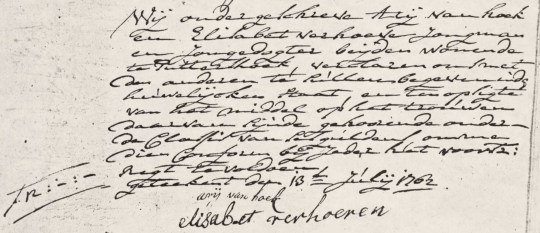 Wij ondergeschreve Arij van hoek
En Elisabet verhoeve Jongman
en Jongedogter beijden wonende
te verclaren ons met
den anderen te begeven in de
huwelijcken staat en ten opsigte
van het middel op het trouwen
daar van sijnde gehoorende onder
de Classis van ses guldens omme
die pro for ijder het voorts:
regt te voldoen
geteekent den 13de Julij 1762
arij van hoek
elisabet verhoeven